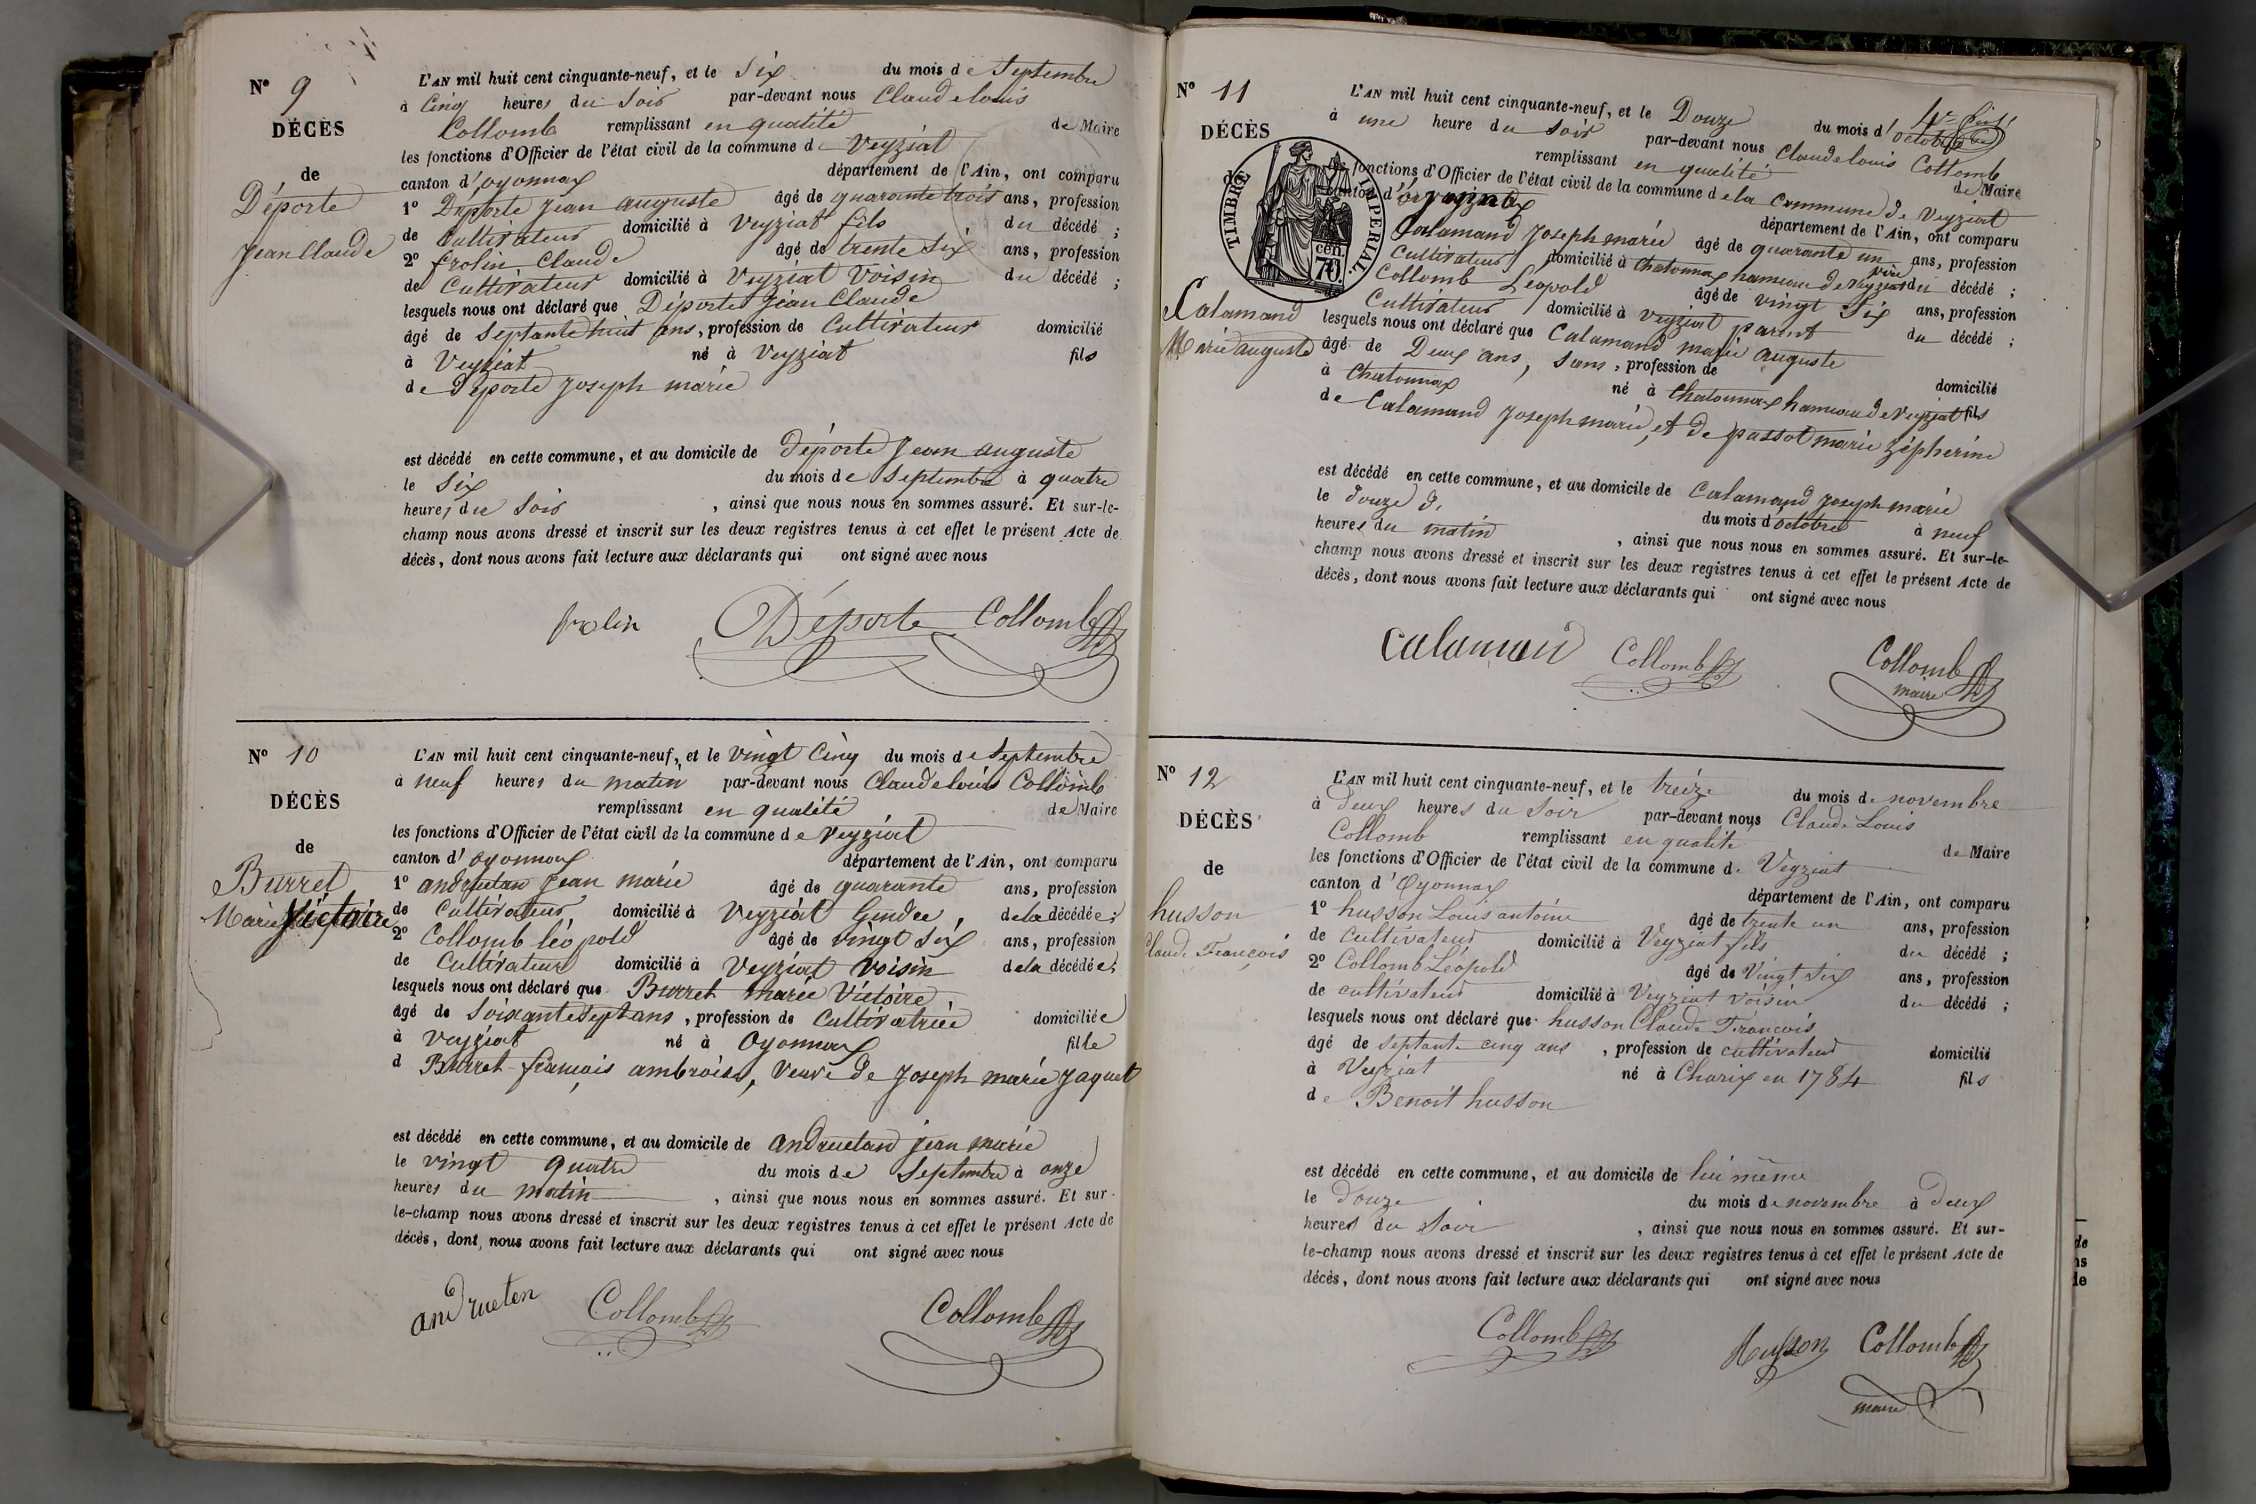 N° 9
DÉCÈS
de
Déporte
Jean Claude
L'AN mil huit cent cinquante-neuf, et le Six du mois de Septembre
à Cinq heures du Soir par-devant nous Claude louis
Collomb remplissant en qualité de Maire
les fonctions d'Officier de l'état civil de la commune de Veyziat
canton d'oyonnax département de l'Ain, ont comparu
1° Déporte Jean auguste âgé de quarante trois ans, profession
de Cultivateur domicilié à Veyziat fils du décédé ;
2° frolin Claude âgé de trente Six ans, profession
de Cultivateur domicilié à Veyziat Voisin du décédé ;
lesquels nous ont déclaré que Déporte Jean Claude
âgé de Septante huit ans, profession de Cultivateur domicilié
à Veyziat né à Veyziat fils
de Déporte Joseph marie
est décédé en cette commune, et au domicile de Déporte Jean auguste
le Six du mois de Septembre à quatre
heures du Soir , ainsi que nous nous en sommes assuré. Et sur-le-
champ nous avons dressé et inscrit sur les deux registres tenus à cet effet le présent Acte de
décès, dont nous avons fait lecture aux déclarants qui ont signé avec nous
frolin Déporte Collomb
N° 10
DÉCÈS
de
Burret
Marie Victoire
L'AN mil huit cent cinquante-neuf, et le vingt Cinq du mois de Septembre
à neuf heures du matin par-devant nous Claude louis Collomb
remplissant en qualité de Maire
les fonctions d'Officier de l'état civil de la commune de Veyziat
canton d'oyonnax département de l'Ain, ont comparu
1° andruetan Jean marie âgé de quarante ans, profession
de Cultivateur, domicilié à Veyziat Gendre, de la décédée ;
2° Collomb léopold âgé de vingt Six ans, profession
de Cultivateur domicilié à Veyziat voisin de la décédée ;
lesquels nous ont déclaré que Burret marie Victoire,
âgé de Soixante Sept ans, profession de Cultivatrice domiciliée
à Veyziat né à Oyonnax fille
d Burret françois ambroise, Veuve de Joseph marie Jaquet
est décédé en cette commune, et au domicile de andruetan jean marie
le vingt quatre du mois de Septembre à onze
heures du matin , ainsi que nous nous en sommes assuré. Et sur-
le-champ nous avons dressé et inscrit sur les deux registres tenus à cet effet le présent Acte de
décès, dont nous avons fait lecture aux déclarants qui ont signé avec nous
andrueten Collomb Collomb
N° 11
DÉCÈS
de
TIMBRE IMPERIAL.
70 cen.
Calamand
Marie auguste
L'AN mil huit cent cinquante-neuf, et le Douze du mois d'octobre
à une heure du Soir par-devant nous Claude louis Collomb
remplissant en qualité de Maire
les fonctions d'Officier de l'état civil de la commune de la Commune de Veyziat
canton d'oyonnax département de l'Ain, ont comparu
Calamand Joseph marie âgé de quarante un ans, profession
Cultivateur domicilié à Chatonnax hameau de Veyziat père du décédé ;
Collomb Léopold âgé de vingt Six ans, profession
Cultivateur domicilié à Veyziat parent du décédé ;
lesquels nous ont déclaré que Calamand marie auguste
âgé de Deux ans, Sans, profession de domicilié
à Chatonnax né à Chatonnax hameau de Veyziat fils
de Calamand Joseph marie, et de passot marie Zépherine
est décédé en cette commune, et au domicile de Calamand Joseph marie
le douze d. du mois d'octobre à neuf
heures du matin , ainsi que nous nous en sommes assuré. Et sur-le-
champ nous avons dressé et inscrit sur les deux registres tenus à cet effet le présent Acte de
décès, dont nous avons fait lecture aux déclarants qui ont signé avec nous
Calaman Collomb Collomb
maire
N° 12
DÉCÈS
de
husson
Claude François
L'AN mil huit cent cinquante-neuf, et le treize du mois de novembre
à Deux heures du Soir par-devant nous Claude Louis
Collomb remplissant en qualité de Maire
les fonctions d'Officier de l'état civil de la commune de Veyziat
canton d'Oyonnax département de l'Ain, ont comparu
1° husson Louis antoine âgé de trente un ans, profession
de cultivateur domicilié à Veyziat fils du décédé ;
2° Collomb Léopold âgé de Vingt six ans, profession
de cultivateur domicilié à Veyziat voisin du décédé ;
lesquels nous ont déclaré que husson Claude François
âgé de septante cinq ans, profession de cultivateur domicilié
à Veyziat né à Charix en 1784 fils
de Benoit husson
est décédé en cette commune, et au domicile de lui même
le douze du mois de novembre à deux
heures du Soir , ainsi que nous nous en sommes assuré. Et sur-
le-champ nous avons dressé et inscrit sur les deux registres tenus à cet effet le présent Acte de
décès, dont nous avons fait lecture aux déclarants qui ont signé avec nous
Collomb Husson Collomb
maire